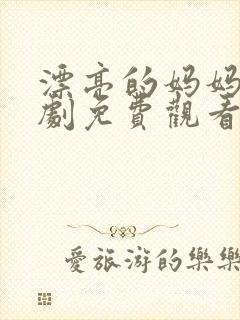 漂亮的妈妈
劇免費觀看
愛旅游的樂樂